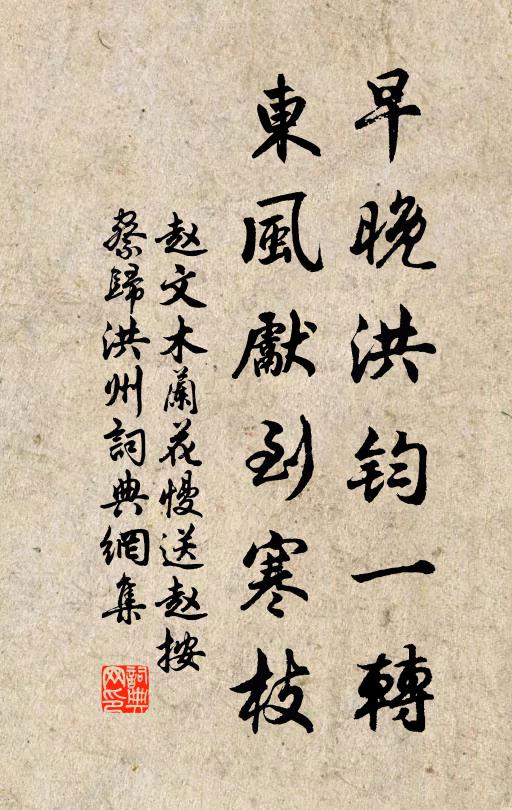 早晚洪钧一轉
東風獻到寒枝
赵文木蘭花慢送赵按
察歸洪州詞典網集
詞典网印